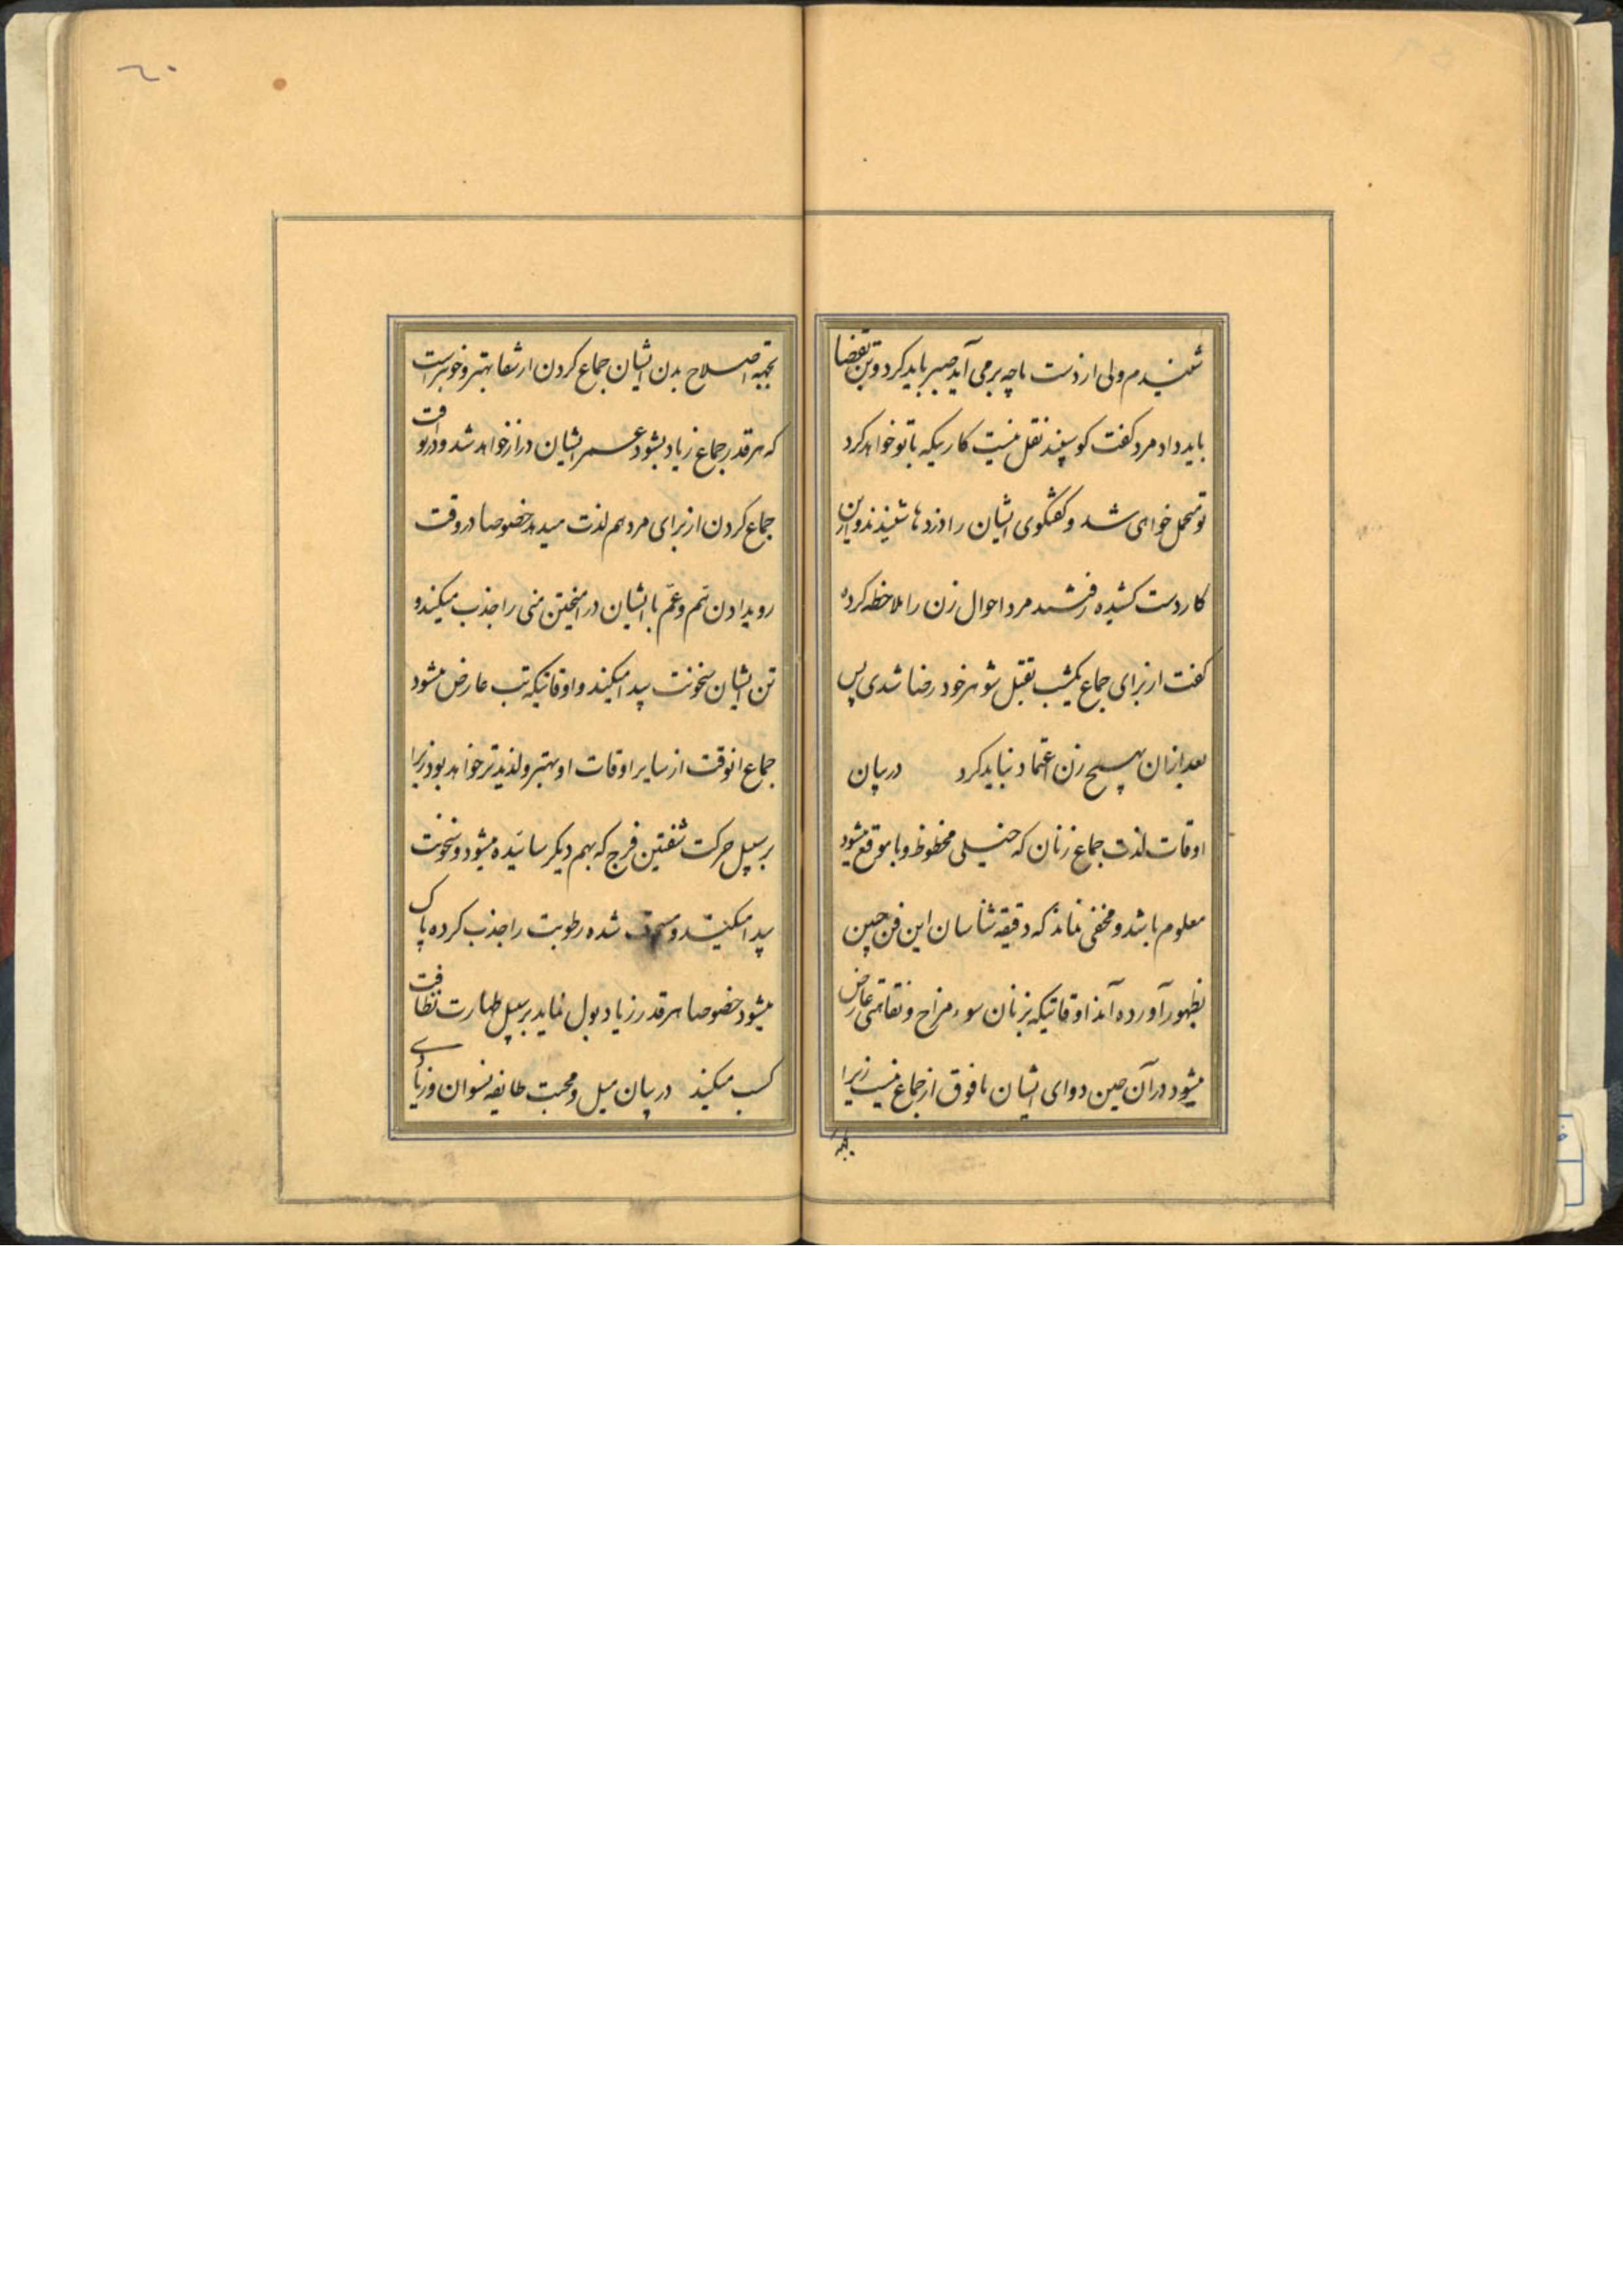 شنیدم ولی از دست ما چه برمی آید صبر باید کرد و تن بقضا
باید داد مرد کفت کوسپند نقل نیست کاریکه با تو خواهد کرد
تو متحمل خواهی شد و کفتگوی ایشان را دزدها شنیدند و از این
کار دست کشیده رفتند مرد احوال زن را ملاحظه کرده
کفت از برای جماع یکشب بقتل شوهر خود رضا شدی پس
بعد ازان بهیچ زن اعتماد نباید کرد در بیان
اوقات لذت جماع زنان که خیلی محظوظ و با موقع میشود
معلوم باشد و مخفی نماند که دقیقه شناسان این فن چنین
بظهور آورده آند اوقاتیکه بزنان سوء مزاح و نقاهتی عارض
میشود در آن حین دوای ایشان مافوق از جماع نیست زیرا
بجهة
بجهة اصلاح بدن ایشان جماع کردن از شفا بهتر و خوبتر است
که هر قدر جماع زیاد بشود عمر ایشان دراز خواهد شد و در آنوقت
جماع کردن از برای مرد هم لذت میدهد خصوصا در وقت
رویدادن هم و غم با ایشان در آمیختن منی را جذب میکند و
تن ایشان سخونت پیدا میکند و اوقاتیکه تب عارض میشود
جماع انوقت از سایر اوقات او بهتر و لذیذتر خواهد بود زیرا
بر سبیل حرکت شفتین فرج که بهم دیکر سائیده میشود و سخونت
پیدا میکنند و شده رطوبت را جذب کرده پاک
میشود خصوصا هر قدر زیاد بول نماید بر سبیل طهارت نظافت
کسب میکند در بیان میل و محبت طایفه نسوان و زیادی
٦٠